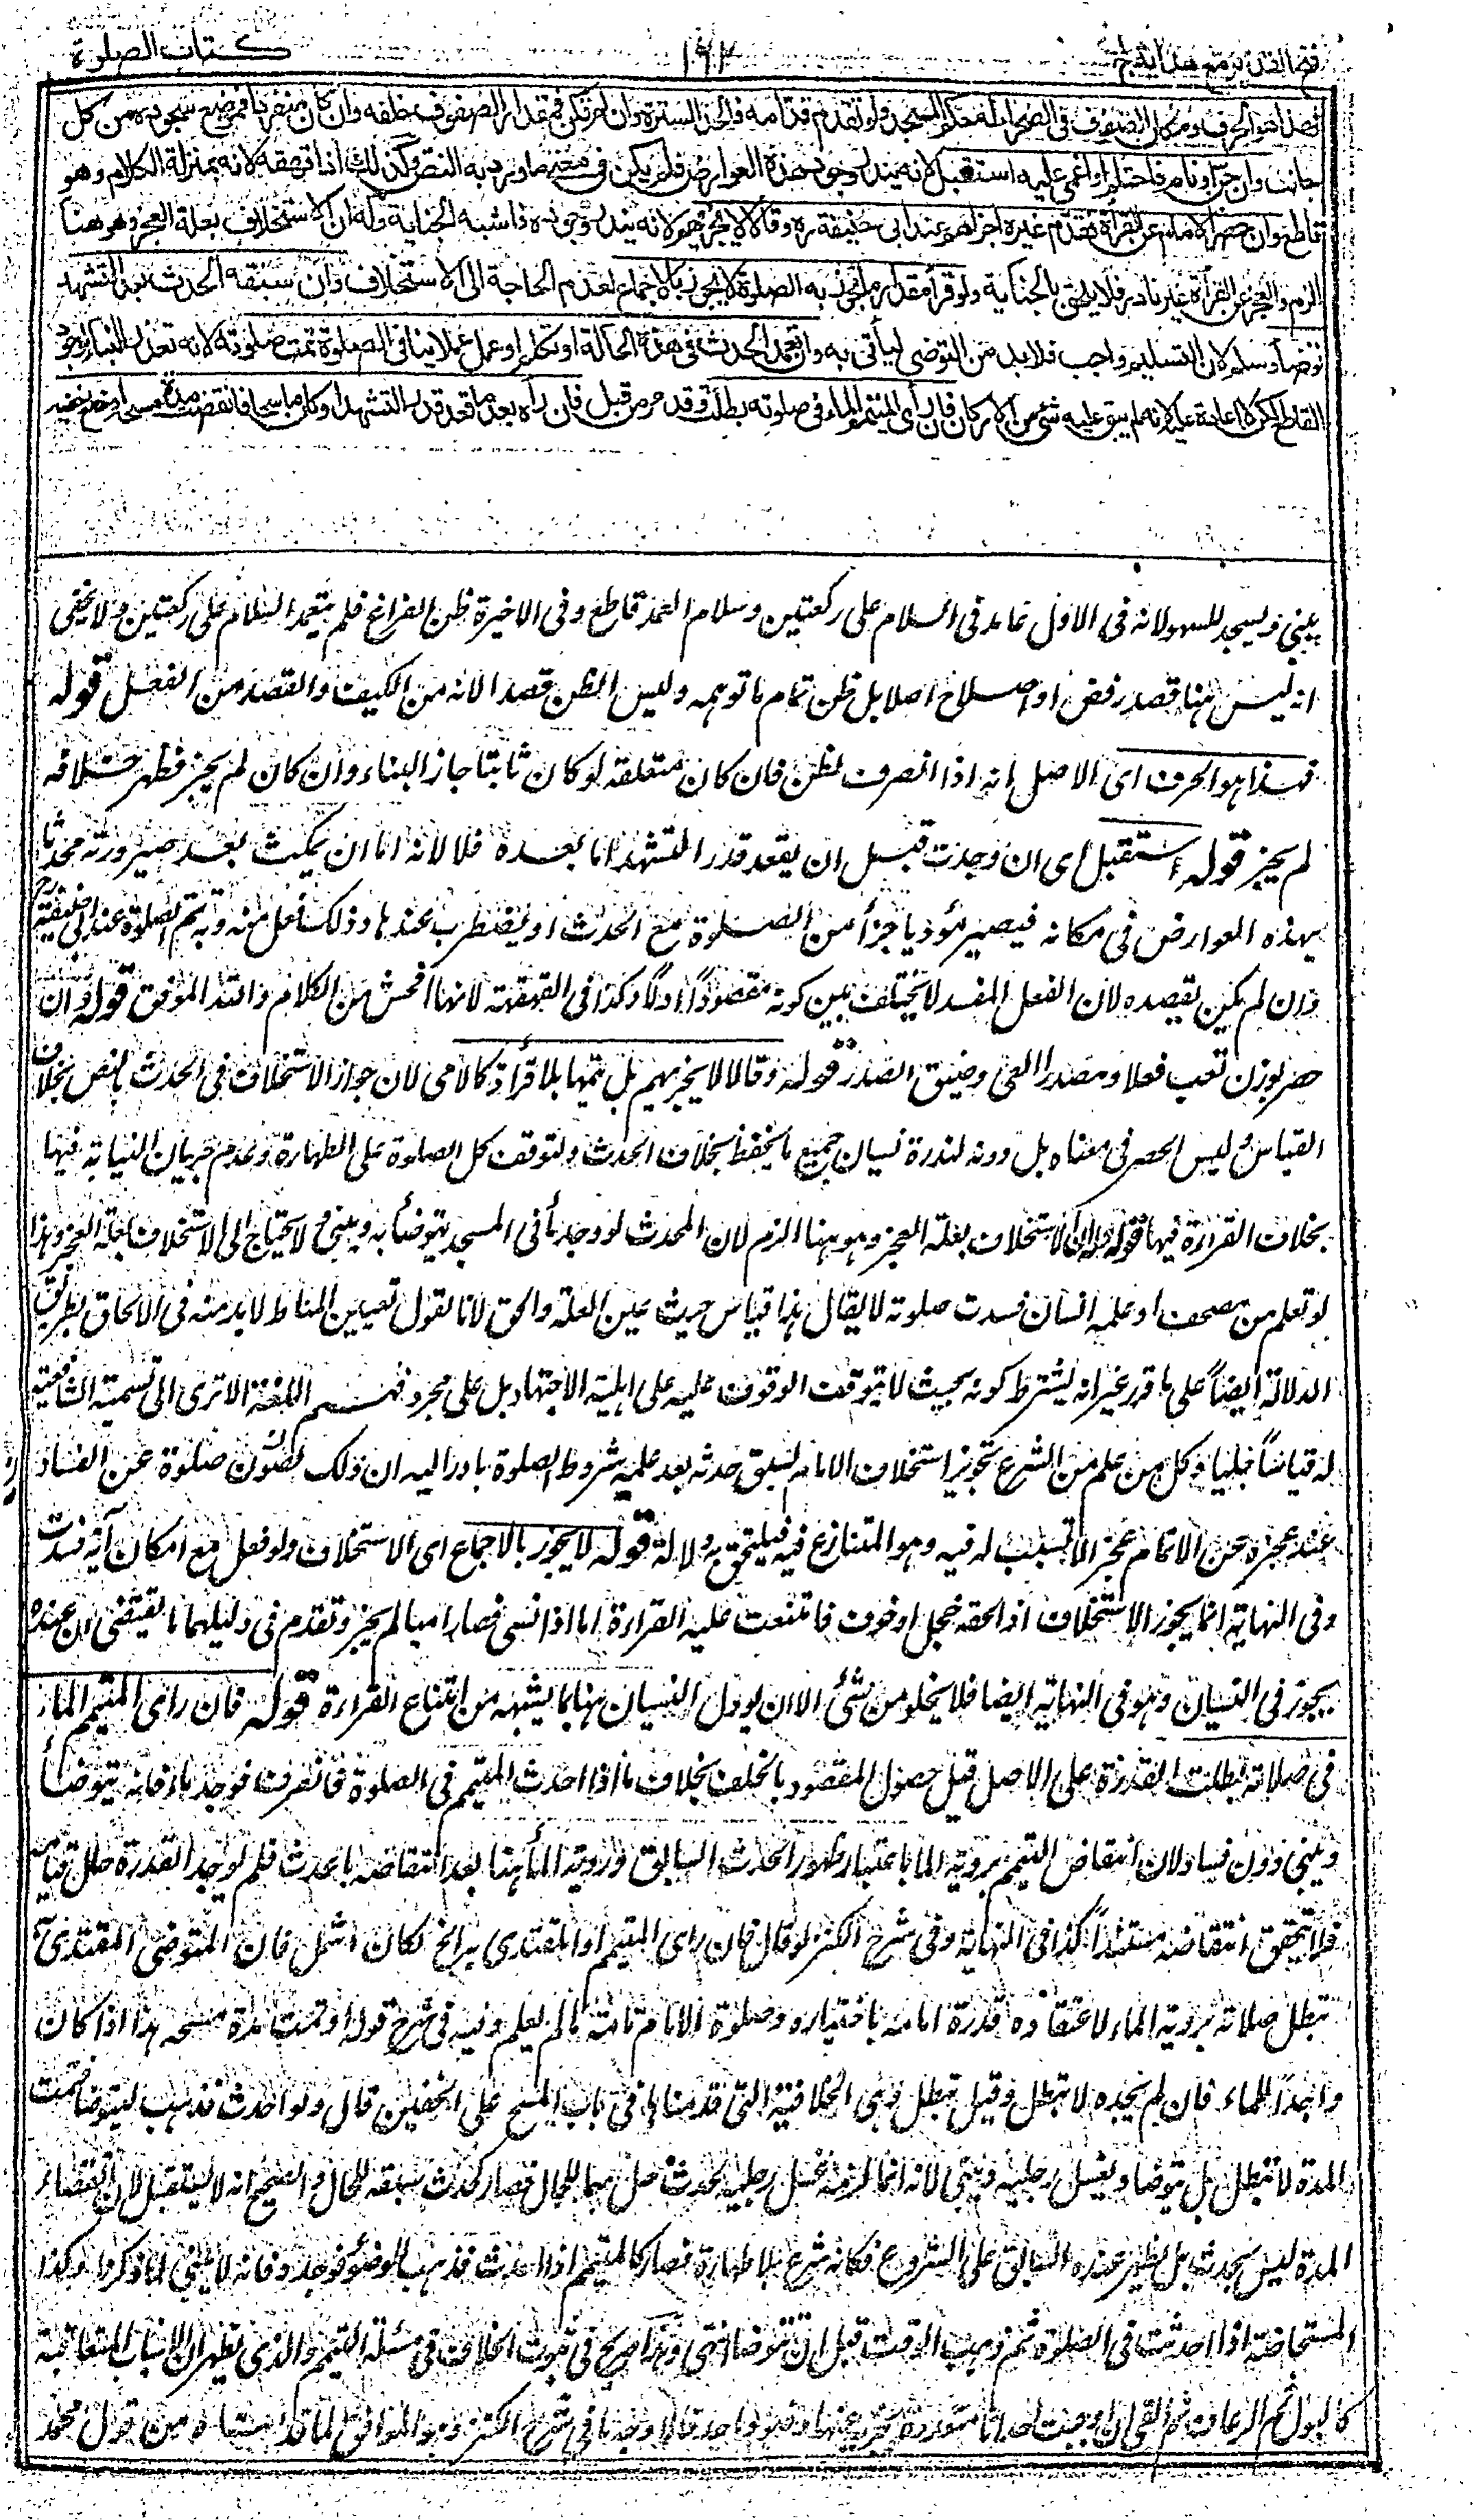 فتح القدير مع هداية ج١
١٦٢
كتاب الصلوة
فهذا هو الحرف ومكان الصفوف فى الصحراء له حكم المسجد ولو تقدم قدامه فالحد السترة وان لم تكن فمقدار الصفوف خلفه وان كان منفردا فموضع سجوده من كل
جانب وان جن او نام فاحتلم او اغمى عليه استقبل لانه يندر وجود هذه العوارض فلم يكن فى معنى ما ورد به النص وكذلك اذا قهقه لانه بمنزلة الكلام وهو
قاطع وان حصر الامام عن القراءة فقدم غيره اجزاهم عند ابى حنيفة ره وقالا لا يجزئهم لانه يندر وجوده فاشبه الجناية وله ان الاستخلاف بعلة العجز وهو ههنا
الزم والعجز عن القراءة غير نادر فلا يلحق بالجناية ولو قرأ مقدار ما تجوز به الصلوة لا يجوز بالاجماع لعدم الحاجة الى الاستخلاف وان سبقه الحدث بعد التشهد
توضأ وسلم لان التسليم واجب فلا بد من التوضى ليأتى به وان تعمد الحدث فى هذه الحالة او تكلم او عمل عملا ينافى الصلوة تمت صلوته لانه تعذر البناء لوجود
القاطع لكن لا اعادة عليه لانه لم يبق عليه شئ من الاركان فان رأى المتيمم الماء فى صلوته بطلت وقد مر من قبل فان رآه بعد ما قعد قدر التشهد او كان ماسحا فانقضت مدة مسحه او خلع خفيه
يبنى ويسجد للسهو لانه فى الاول عامد فى السلام على ركعتين وسلام العمد قاطع وفى الاخيرة ظن الفراغ فلم يتعمد السلام على ركعتين ولا يخفى
انه ليس هنا قصد رفض او اصلاح اصلا بل ظن تمام ما توهمه وليس الظن قصدا لانه من الكيف والقصد من الفعل قوله
فهذا هو الحرف اى الاصل انه اذا انصرف لظن فان كان متعلقه لو كان ثابتا جاز البناء وان كان لم يجز فظهر خلافه
لم يجز قوله استقبل اى ان وجدت قبل ان يقعد قدر التشهد اما بعده فلا لانه اما ان يمكث بعد صيرورته محدثا
بهذه العوارض فى مكانه فيصير مؤديا جزأ من الصلوة مع الحدث او يضطرب عندها وذلك فعل منه وبه تتم الصلوة عند ابى حنيفة رح
وان لم يكن يقصده لان الفعل المفسد لا يختلف بين كونه مقصودا اولا وكذا فى القهقهة لانها افحش من الكلام والله الموفق قوله وان
حصر بوزن تعب فعلا ومصدرا العى وضيق الصدر قوله وقالا لا يجزيهم بل يتمها بلا قراءة كالامى لان جواز الاستخلاف فى الحدث بالنص بخلاف
القياس وليس الحصر فى معناه بل دونه لندرة نسيان جميع ما يحفظ بخلاف الحدث ولتوقف كل الصلوة على الطهارة وعدم جريان النيابة فيها
بخلاف القراءة فيها قوله وله ان الاستخلاف بعلة العجز وهو ههنا الزم لان المحدث لو وجد ماء فى المسجد يتوضأ به ويبنى ولا يحتاج الى الاستخلاف بعلة العجز وهذا
لو تعلم من مصحف او علمه انسان فسدت صلوته لا يقال هذا قياس حيث عين العلة والحق لانا نقول تعيين المناط لا بد منه فى الالحاق بطريق
الدلالة ايضا على ما قرر غير انه يشترط كونه بحيث لا يتوقف الوقوف عليه على اهلية الاجتهاد بل على مجرد فهم اللغة الا ترى الى تسمية الشافعية
له قياسا جليا وكل من علم من الشرع تجويز استخلاف الامام لسبق حدثه بعد علمه شروط الصلوة بادر اليه ان ذلك لصون صلوة عن الفساد
عند عجزه عن الاتمام عجزا لا تسبب له فيه وهو المتنازع فيه فيلتحق به دلالة قوله لا يجوز بالاجماع اى الاستخلاف ولو فعل مع امكان آية فسدت
وفى النهاية انما يجوز الاستخلاف اذا لحقه خجل او خوف فامتنعت عليه القراءة اما اذا نسى فصار اميا لم يجز وتقدم فى دليلهما ما يقتضى ان عنده
يجوز فى النسيان وهو فى النهاية ايضا فلا يخلو من شئ الا ان يؤول النسيان هنا بما يشبهه من امتناع القراءة قوله فان رأى المتيمم الماء
فى صلاته بطلت للقدرة على الاصل قبل حصول المقصود بالخلف بخلاف ما اذا احدث المتيمم فى الصلوة فانصرف فوجد ماء فانه يتوضأ
ويبنى دون فساد لان انتقاض التيمم برؤية الماء باعتبار ظهور الحدث السابق ورؤية الماء هنا بعد انتقاضه بالحدث فلم توجد القدرة حال قيامه
فلا يتحقق انتقاضه مستندا كذا فى النهاية وفى شرح الكنز لو قال فان رأى المتيمم او المقتدى به الخ لكان اشمل فان المتوضى المقتدى به
تبطل صلاته برؤية الماء لاعتقاده قدرة امامه باختياره وصلوة الامام تامة ما لم يعلم وفيه فى شرح قوله او تمت مدة مسحه هذا اذا كان
واجدا للماء فان لم يجده لا تبطل وقيل تبطل وهى الخلافية التى قدمناها فى باب المسح على الخفين قال ولو احدث فذهب ليتوضأ فتمت
المدة لا تبطل بل يتوضأ ويغسل رجليه ويبنى لانه انما لزمه غسل رجليه لحدث حل بهما للحال فصار كحدث سبقه للحال والصحيح انه يستقبل لان انقضاء
المدة ليس بحدث بل يظهر عنده السابق على الشروع فكانه شرع بلا طهارة فصار كالمتيمم اذا احدث فذهب للوضوء فوجده فانه لا يبنى لما ذكرنا وكذا
المستحاضة اذا احدثت فى الصلوة ثم ذهب الوقت قبل ان تتوضأ انتهى وهذا صريح فى ثبوت الخلاف فى مسئلة التيمم والذى يظهر ان الاسباب المتعاقبة
كالبول ثم الرعاف ثم القئ ان اوجبت احداثا متعددة يجزئه عنها وضوء واحد فالاوجه ما فى شرح الكنز وهو الموافق لما قدمناه من قول محمد